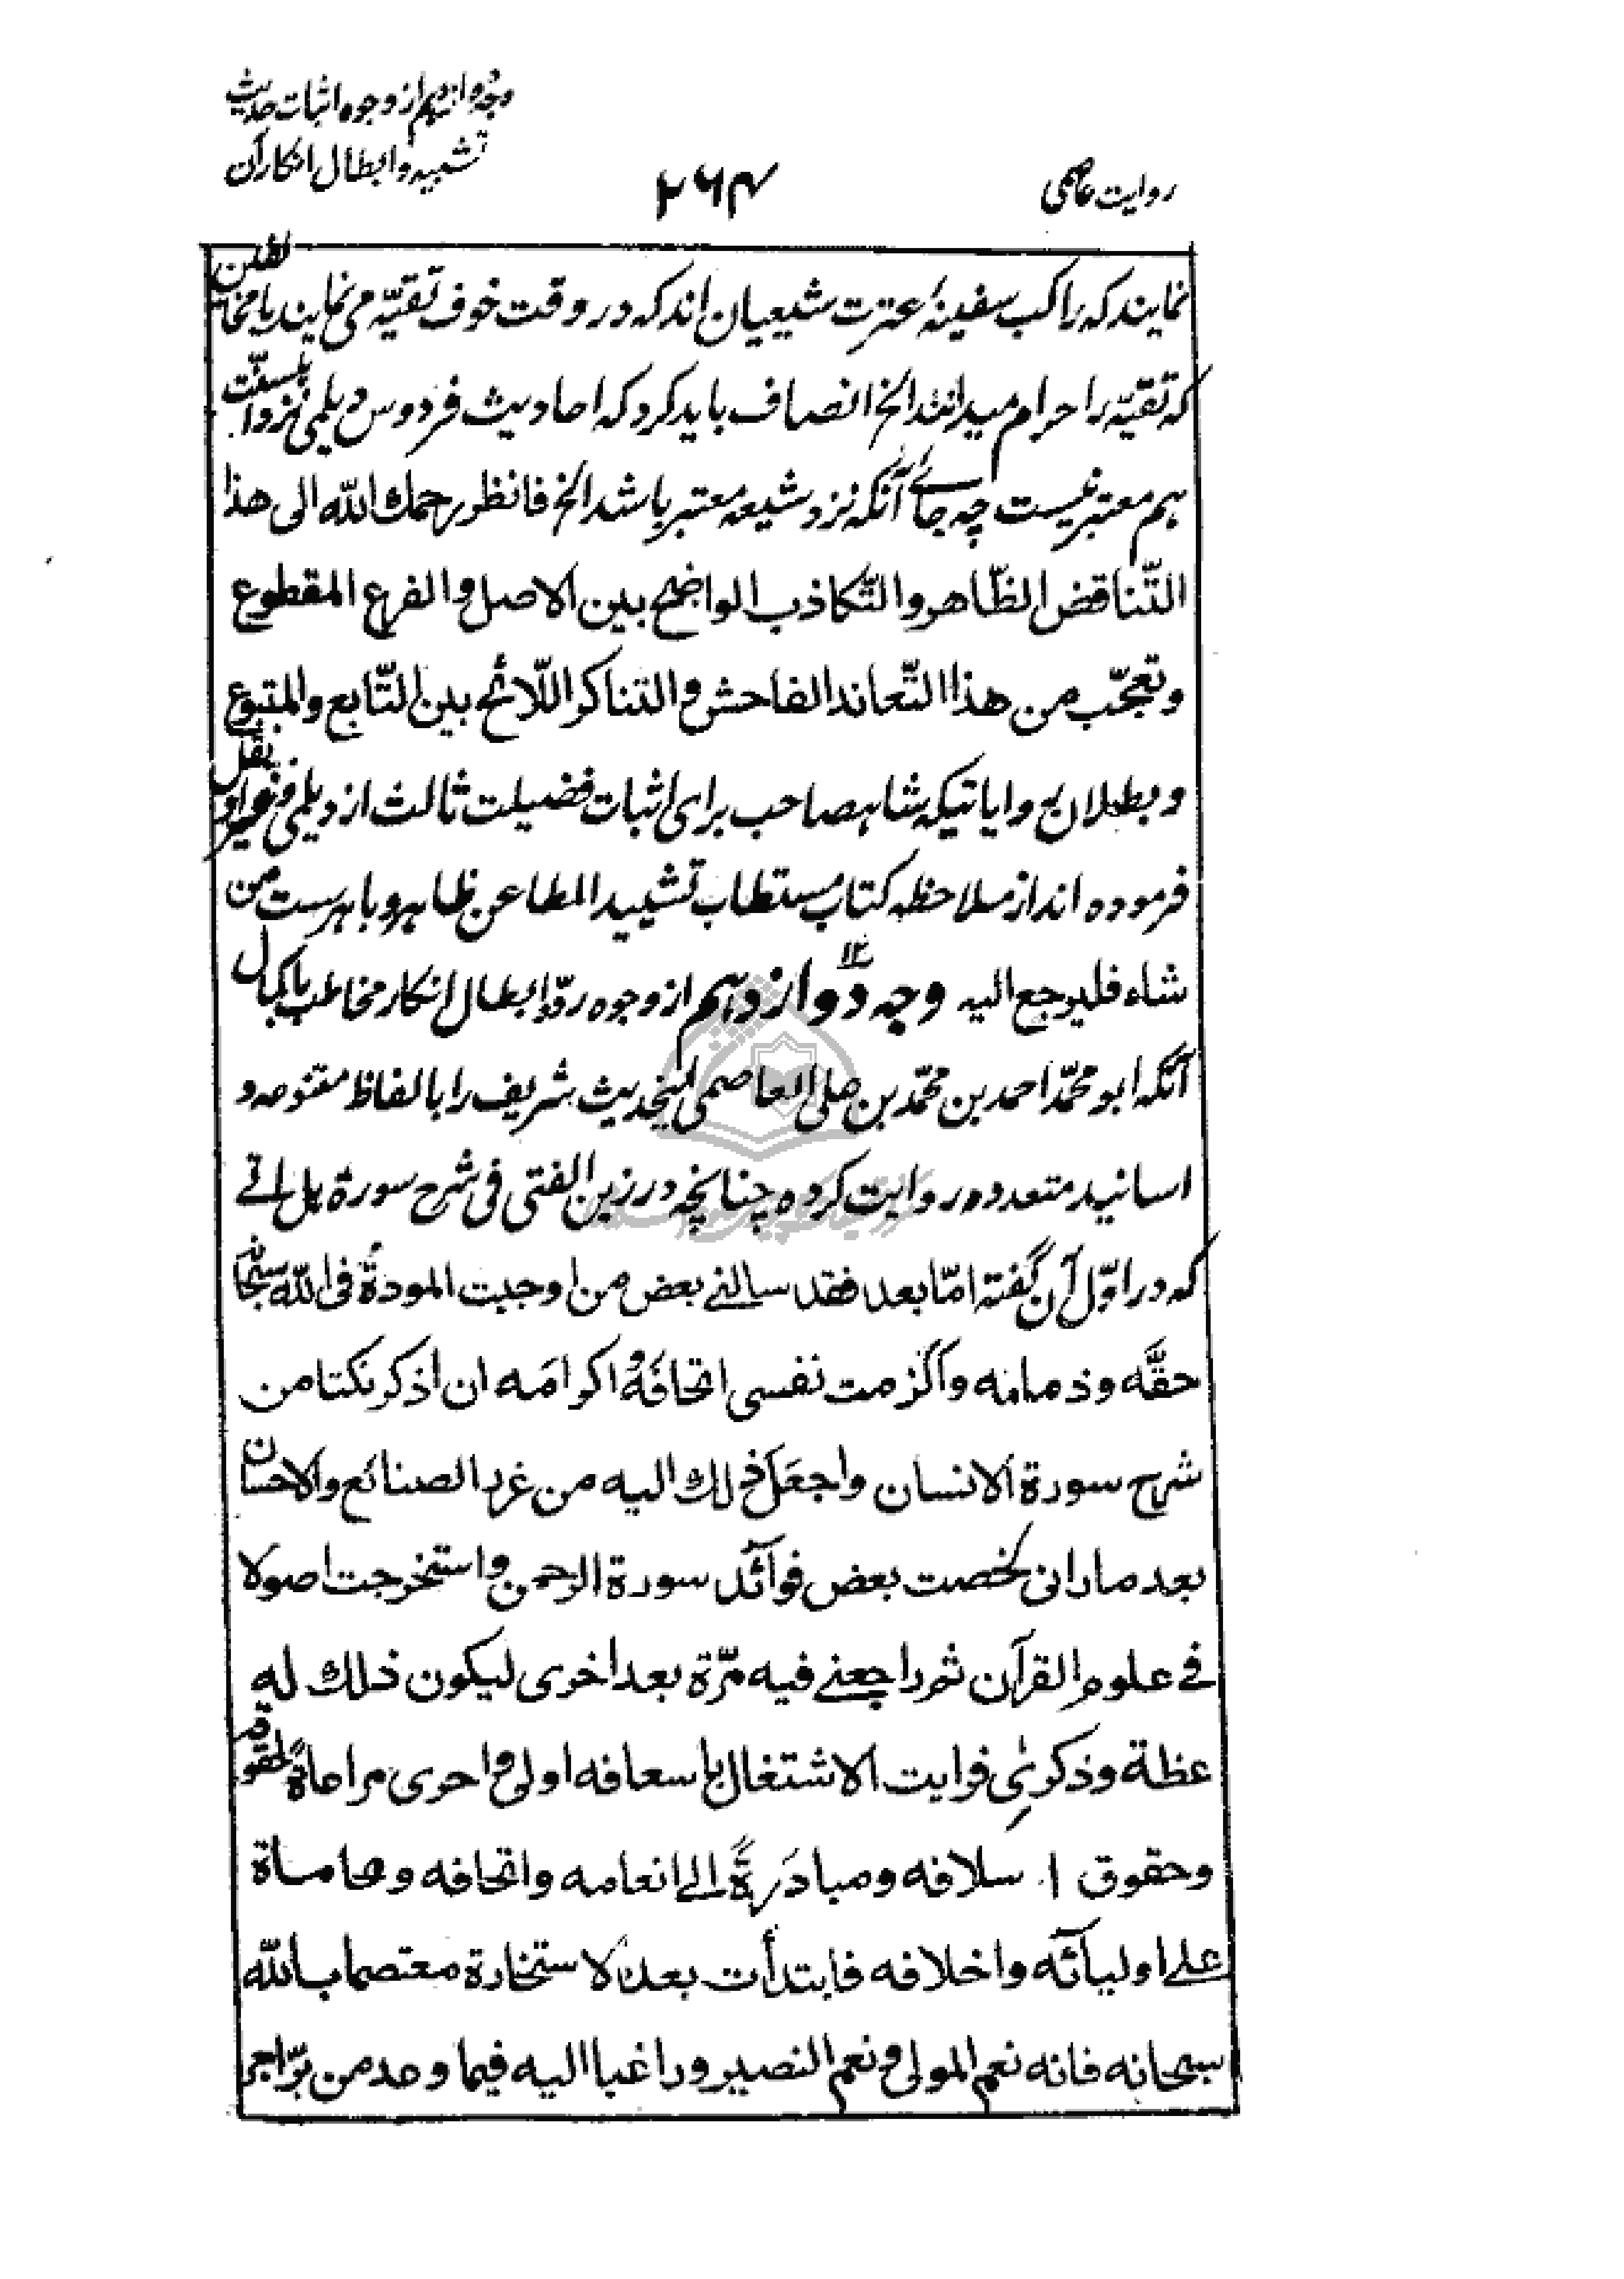 روایت عاصمی
۲۶۴
وجه دوازدهم از وجوه اثبات حدیث
تشبیه و ابطال انکار آن
نمایند که راکب سفینهٔ عترت شیعیان اند که در وقت خوف تقیّه می نمایند یا مخالفین
که تقیّه را حرام میدانند الخ انصاف باید کرد که احادیث فردوس دیلمی نزد اہلسنّت
هم معتبر نیست چه جائے آنکه نزد شیعه معتبر باشد الخ فانظر رحمك الله الی هذا
التّناقض الظّاهر والتّکاذب الواضح بین الاصل والفرع المقطوع
وتعجّب من هذا التّعاند الفاحش والتناکر اللّائح بین التّابع والمتبوع
وبطلان روایاتیکه شاهصاحب برای اثبات فضیلت ثالث از دیلمی وغیر او نقل
فرموده اند از ملاحظه کتاب مستطاب تشیید المطاعن ظاهر و باهرست من
شاء فلیرجع الیه وجه دوازدهم ۱۲ از وجوه ردّ و ابطال انکار مخاطب باکمال
آنکه ابو محمّد احمد بن محمّد بن علی العاصمی اینحدیث شریف را بالفاظ متنوعه و
اسانید متعدده روایت کرده چنانچه در زین الفتی فی شرح سورة هل اتے
که در اوّل آن گفته امّا بعد فقد سالنے بعض من اوجبت المودةُ فی الله سبحانه
حقَّه وذمامه والزمت نفسی اتحافَهُ واکرامَه ان اذکر نکتا من
شرح سورة الانسان واجعَل ذلك الیه من غرر الصنائع والاحسان
بعد ما رانی لخصت بعض فوآئد سورة الرحمن واستخرجت اصولا
فے علوم القرآن ثم راجعنے فیه مرّة بعد اخری لیکون ذلك له
عظة وذکریٰ فرایت الاشتغال باسعافه اولی واحری مراعاةً لحقوقه
وحقوق اسلافه ومبادَرَةً الے انعامه واتحافه ومحاماة
علے اولیآئه واخلافه فابتدأت بعد الاستخارة معتصما بالله
سبحانه فانه نعم المولی ونعم النصیر وراغبا الیه فیما وعد من بّر اجر